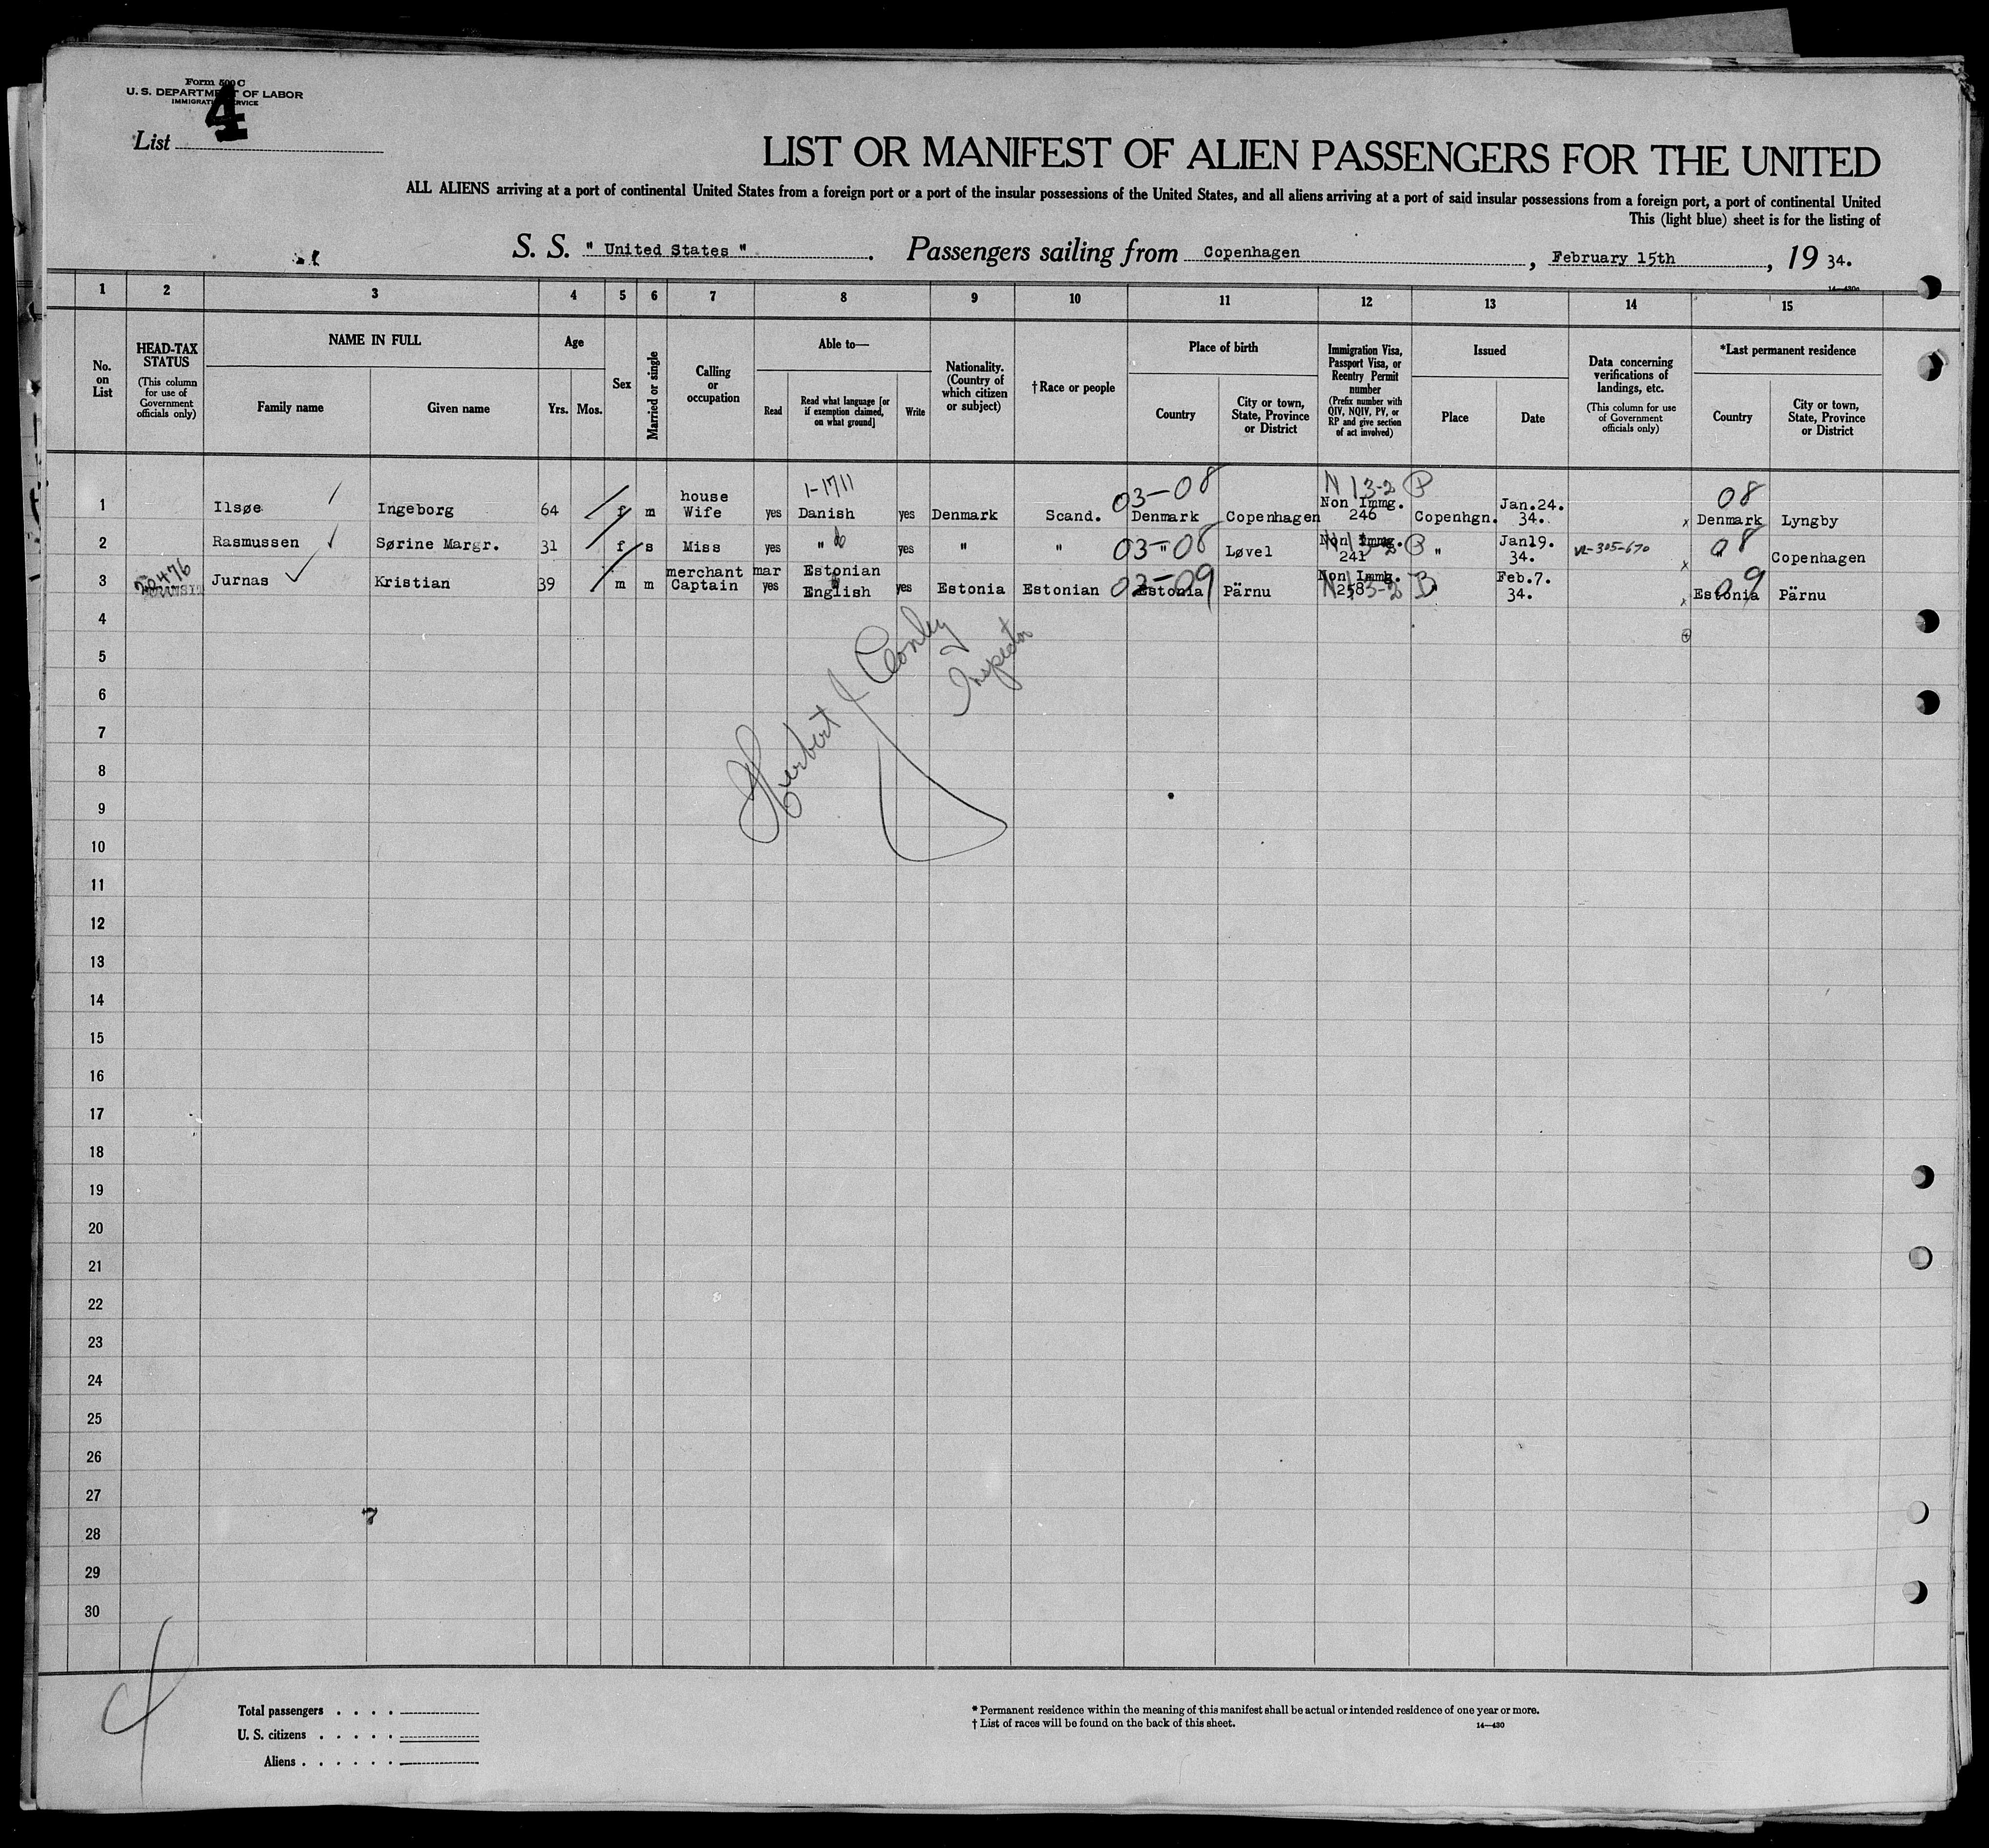 Form 500 C
U. S. DEPARTMENT OF LABOR
IMMIGRATION SERVICE
List 4
LIST OR MANIFEST OF ALIEN PASSENGERS FOR THE UNITED
ALL ALIENS arriving at a port of continental United States from a foreign port or a port of the insular possessions of the United States, and all aliens arriving at a port of said insular possessions from a foreign port, a port of continental United
This (light blue) sheet is for the listing of
S. S. " United States ". Passengers sailing from Copenhagen, February 15th, 19 34.
14—430a
1 2 3 4 5 6 7 8 9 10 11 12 13 14 15
No. on List
HEAD-TAX STATUS (This column for use of Government officials only)
NAME IN FULL
Family name Given name
Age
Yrs. Mos.
Sex
Married or single
Calling or occupation
Able to—
Read
Read what language [or if exemption claimed, on what ground]
Write
Nationality. (Country of which citizen or subject)
†Race or people
Place of birth
Country
City or town, State, Province or District
Immigration Visa, Passport Visa, or Reentry Permit number (Prefix number with QIV, NQIV, PV, or RP and give section of act involved)
Issued
Place Date
Data concerning verifications of landings, etc. (This column for use of Government officials only)
*Last permanent residence
Country
City or town, State, Province or District
1-1711 03-08 N 13-2 P 08
1 Ilsøe Ingeborg 64 f m house Wife yes Danish yes Denmark Scand. Denmark Copenhagen Non Immg. 246 Copenhgn. Jan.24. 34. x Denmark Lyngby
2 Rasmussen Sørine Margr. 31 f s Miss yes " yes " " 03-08 " Løvel Non Immg. 241 P " Jan19. 34. VL-305-670 x " 08 Copenhagen
3 20476 TRANSIT Jurnas Kristian 39 m m merchant mar Captain yes Estonian English yes Estonia Estonian 03-09 Estonia Pärnu Non Immg. 258 N 13-2 B " Feb.7. 34. x Estonia 09 Pärnu
4
5
6
7
8
9
10
11
12
13
14
15
16
17
18
19
20
21
22
23
24
25
26
27
28
29
30
Herbert J Conly
Inspector
7
4
Total passengers . . . .
U. S. citizens . . . . .
Aliens . . . . . .
* Permanent residence within the meaning of this manifest shall be actual or intended residence of one year or more.
† List of races will be found on the back of this sheet.
14—430